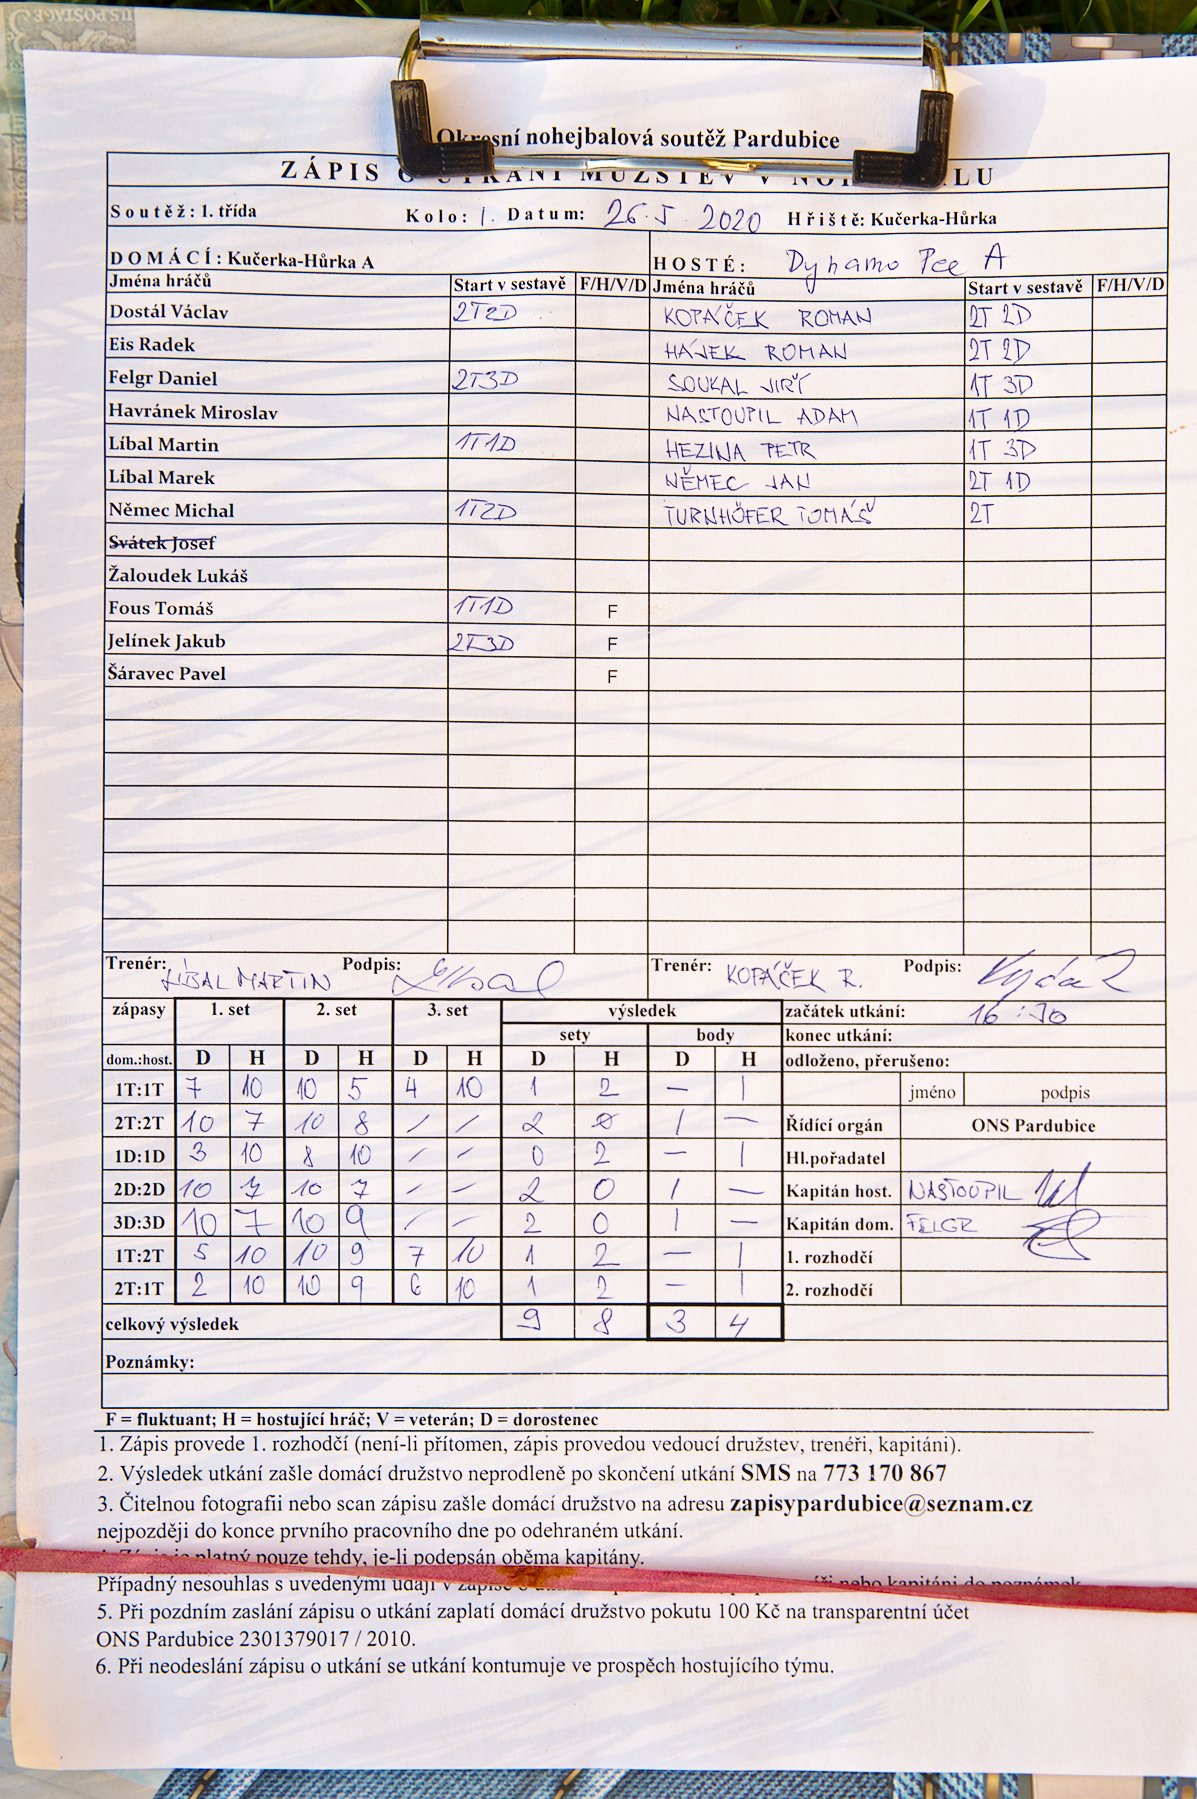 US POSTAGE
Okresní nohejbalová soutěž Pardubice
ZÁPIS O UTKÁNÍ MUŽSTEV V
Soutěž: 1. třída Kolo: 1. Datum: 26.5. 2020 Hřiště: Kučerka-Hůrka
DOMÁCÍ: Kučerka-Hůrka A HOSTÉ: Dynamo Pce A
Jména hráčů Start v sestavě F/H/V/D Jména hráčů Start v sestavě F/H/V/D
Dostál Václav 2T2D KOPÁČEK ROMAN 2T 2D
Eis Radek HÁJEK ROMAN 2T 2D
Felgr Daniel 2T3D SOUKAL JIŘÍ 1T 3D
Havránek Miroslav NASTOUPIL ADAM 1T 1D
Líbal Martin 1T1D HEZINA PETR 1T 3D
Líbal Marek NĚMEC JAN 2T 1D
Němec Michal 1T2D TURNHÖFER TOMÁŠ 2T
Svátek Josef
Žaloudek Lukáš
Fous Tomáš 1T1D F
Jelínek Jakub 2T3D F
Šáravec Pavel F
Trenér: LÍBAL MARTIN Podpis: Trenér: KOPÁČEK R. Podpis:
zápasy 1. set 2. set 3. set výsledek začátek utkání: 16:30
sety body konec utkání:
dom.:host. D H D H D H D H D H odloženo, přerušeno:
1T:1T 7 10 10 5 4 10 1 2 – 1 jméno podpis
2T:2T 10 7 10 8 / / 2 0 1 – Řídící orgán ONS Pardubice
1D:1D 3 10 8 10 / / 0 2 – 1 Hl.pořadatel
2D:2D 10 7 10 7 / / 2 0 1 – Kapitán host. NASTOUPIL
3D:3D 10 7 10 9 / / 2 0 1 – Kapitán dom. FELGR
1T:2T 5 10 10 9 7 10 1 2 – 1 1. rozhodčí
2T:1T 2 10 10 9 6 10 1 2 – 1 2. rozhodčí
celkový výsledek 9 8 3 4
Poznámky:
F = fluktuant; H = hostující hráč; V = veterán; D = dorostenec
1. Zápis provede 1. rozhodčí (není-li přítomen, zápis provedou vedoucí družstev, trenéři, kapitáni).
2. Výsledek utkání zašle domácí družstvo neprodleně po skončení utkání SMS na 773 170 867
3. Čitelnou fotografii nebo scan zápisu zašle domácí družstvo na adresu zapisypardubice@seznam.cz
nejpozději do konce prvního pracovního dne po odehraném utkání.
4. Zápis je platný pouze tehdy, je-li podepsán oběma kapitány.
Případný nesouhlas s uvedenými údaji v zápise o nebo kapitáni do poznámek
5. Při pozdním zaslání zápisu o utkání zaplatí domácí družstvo pokutu 100 Kč na transparentní účet
ONS Pardubice 2301379017 / 2010.
6. Při neodeslání zápisu o utkání se utkání kontumuje ve prospěch hostujícího týmu.